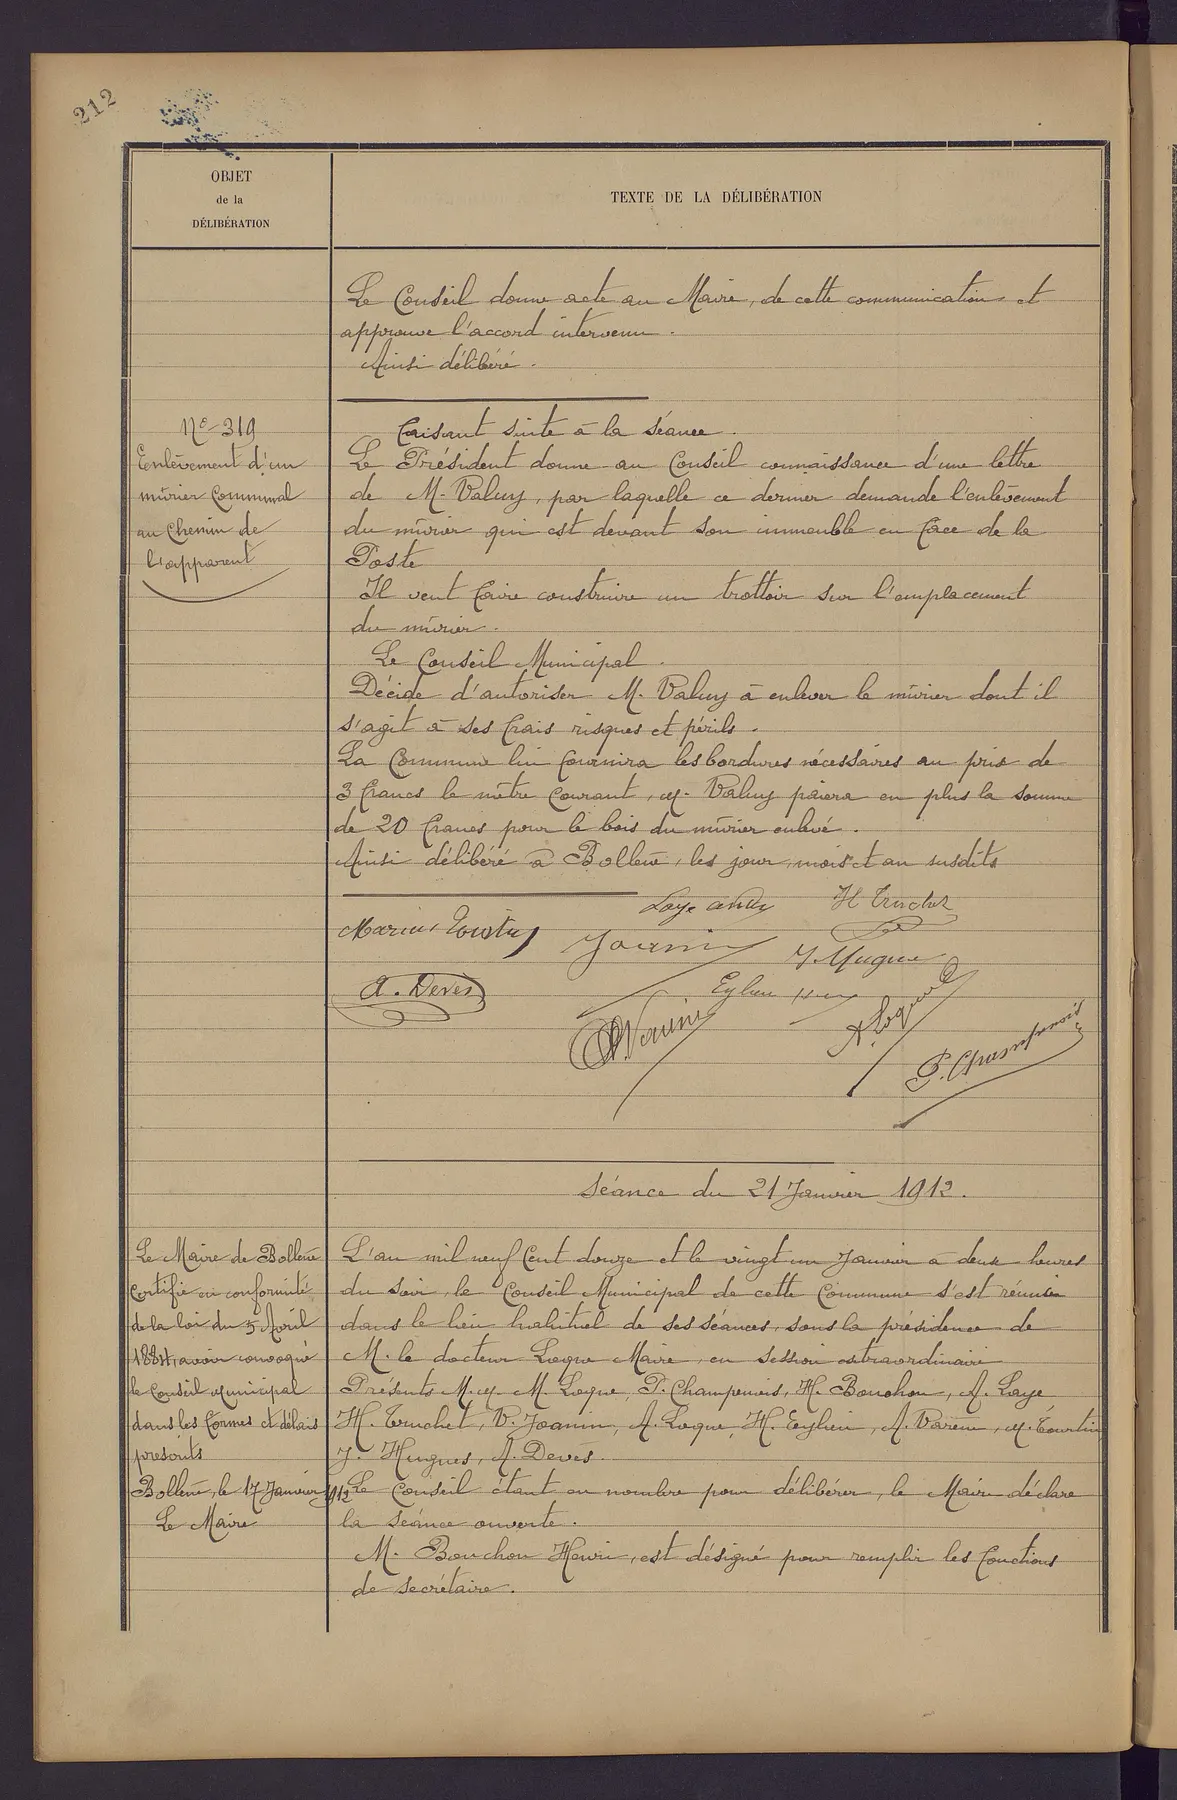 212
OBJET
de la
DÉLIBÉRATION
TEXTE DE LA DÉLIBÉRATION
Le Conseil donne acte au Maire, de cette communication et
approuve l'accord intervenu.
Ainsi délibéré.
No 319
Enlèvement d'un
mûrier Communal
au Chemin de
l'apparent
Faisant suite à la séance.
Le Président donne au Conseil connaissance d'une lettre
de M. Valuy, par laquelle ce dernier demande l'enlèvement
du mûrier qui est devant son immeuble en face de la
Poste
Il veut faire construire un trottoir sur l'emplacement
du mûrier.
Le Conseil Municipal.
Décide d'autoriser M. Valuy à enlever le mûrier dont il
s'agit à ses frais risques et périls.
La Commune lui fournira les bordures nécessaires au prix de
3 francs le mètre courant, M. Valuy paiera en plus la somme
de 20 francs pour le bois du mûrier enlevé.
Ainsi délibéré à Bollène, les jour, mois et an susdits
Laye H Truchet
Marius Tourtin Joanin J. Hugues
A. Devès Eylieu A. Loque
Varène P. Champenois
Séance du 21 Janvier 1912.
Le Maire de Bollène
certifie en conformité
de la loi du 5 Avril
1884, avoir convoqué
le Conseil Municipal
dans les formes et délais
prescrits
Bollène, le 17 Janvier 1912
Le Maire
L'an mil neuf cent douze et le vingt un Janvier à deux heures
du soir, le Conseil Municipal de cette Commune s'est réuni
dans le lieu habituel de ses séances, sous la présidence de
M. le docteur Loque Maire, en session extraordinaire
Présents M.M. M. Loque, P. Champenois, H. Bouchon, A. Laye
H. Truchet, V. Joanin, A. Loque, H. Eylieu, A. Varène, M. Tourtin
J. Hugues, A. Devès.
Le Conseil étant en nombre pour délibérer, le Maire déclare
la séance ouverte.
M. Bouchon Henri, est désigné pour remplir les fonctions
de secrétaire.